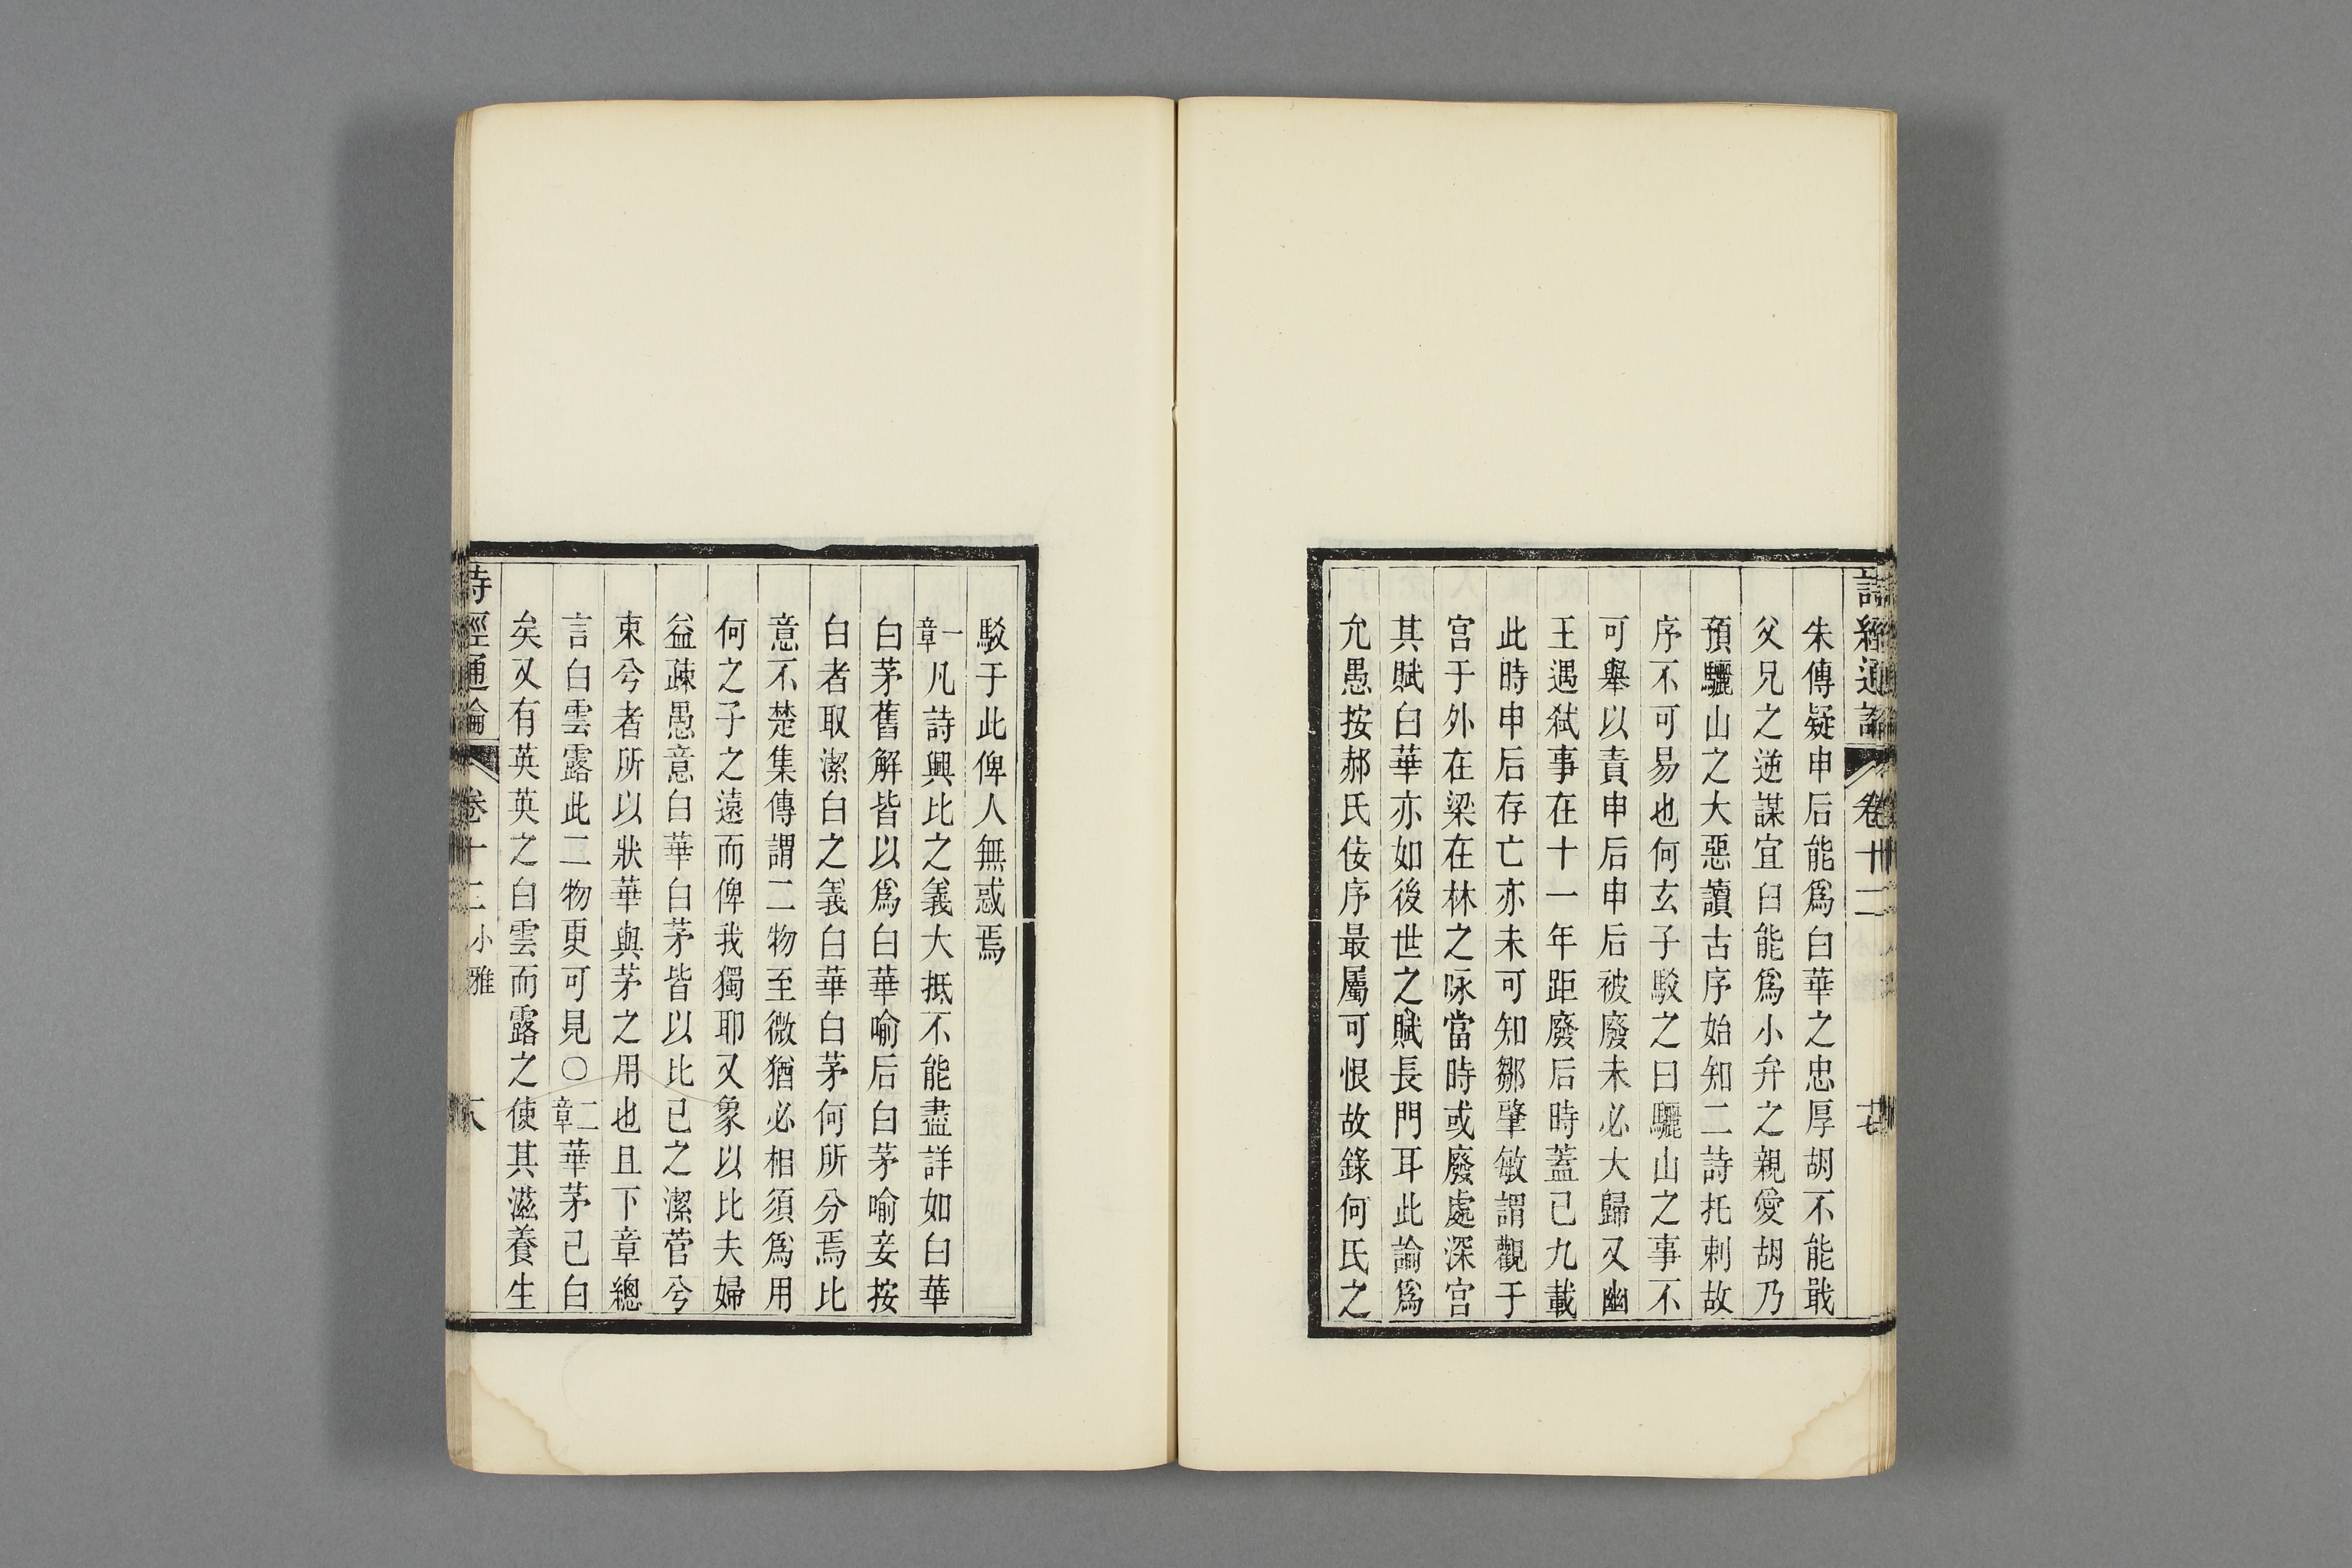 詩經通論 卷十二 十七
朱傳疑申后能爲白華之忠厚胡不能戢
父兄之逆謀宜臼能爲小弁之親愛胡乃
預驪山之大惡讀古序始知二詩托刺故
序不可易也何玄子駁之曰驪山之事不
可舉以責申后申后被廢未必大歸又幽
王遇弒事在十一年距廢后時蓋已九載
此時申后存亡亦未可知鄒肇敏謂觀于
宮于外在梁在林之咏當時或廢處深宮
其賦白華亦如後世之賦長門耳此論爲
允愚按郝氏佞序最屬可恨故錄何氏之
駁于此俾人無惑焉
一章凡詩興比之義大抵不能盡詳如白華
白茅舊解皆以爲白華喻后白茅喻妾按
白者取潔白之義白華白茅何所分焉比
意不楚集傳謂二物至微猶必相須爲用
何之子之遠而俾我獨耶又象以比夫婦
益疎愚意白華白茅皆以比己之潔菅兮
束兮者所以狀華與茅之用也且下章總
言白雲露此二物更可見〇二章華茅已白
矣又有英英之白雲而露之使其滋養生
詩經通論 卷十二 小雅 十八